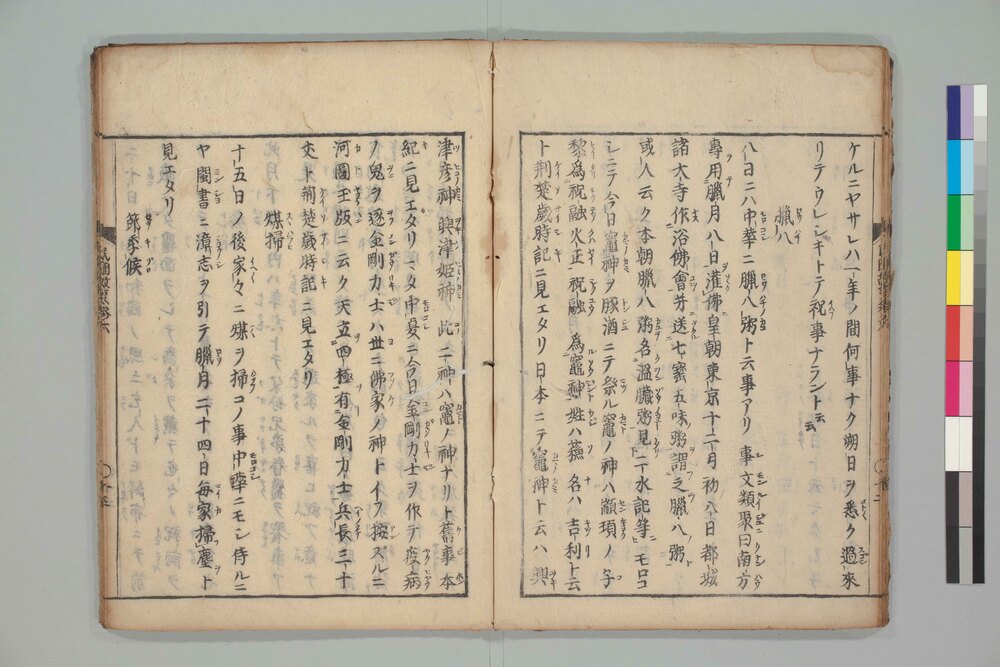 ケルニヤサレハ一年ノ間何事ナク朔日ヲ悉ク過來
リテウレシキトテ祝事ナラント云云
臘八
八日ニハ中華ニ臘八粥ト云事アリ事文類聚曰南方
專用臘月八日灌佛皇朝東京十二月初八日都城
諸大寺作浴佛會并送七寳五味粥謂之臘八粥
或人云ク本朝臘八粥名温臟粥見一水記等モロコ
シニテ今日竈神ヲ豚酒ニテ祭ル竈ノ神ハ顓頊ノ子
黎爲祝融火正祝融爲竈神姓ハ蘓名ハ吉利ト云
ト荆楚歲時記ニ見エタリ日本ニテ竈神ト云ハ興
津彦神興津姫神此二神ハ竈ノ神ナリト舊事本
紀ニ見エタリ又中夏ニ今日金剛力士ヲ作テ疫病
ノ鬼ヲ逐金剛力士ハ世ニ佛家ノ神トイフ按ズルニ
河圖玉版ニ云ク天立四極有金剛力士兵長三十
丈ト荊楚歲時記ニ見エタリ
煤掃
十五日ノ後家々ニ煤ヲ掃コノ事中華ニモン侍ルニ
ヤ閩書ニ漳志ヲ引テ臘月二十四日毎家掃塵ト
見エタリ
節季候